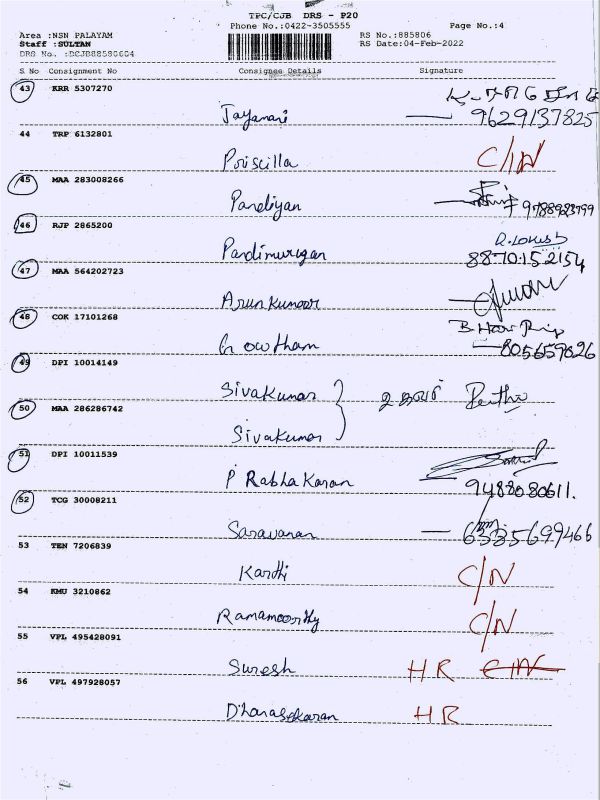 TPC/CJB DRS - P20
Phone No.:0422-3505555 Page No.:4
Area :NSN PALAYAM RS No.:885806
Staff :SULTAN RS Date:04-Feb-2022
DRS No. :DCJB88580604
S No Consignment No Consignee Details Signature
43 KRR 5307270
Jayamani 9629137825
44 TRP 6132801
Priscilla C/N
45 MAA 283008266
Pandiyan 9788983799
46 RJP 2865200
Pandimurugan 8870152154
47 MAA 564202723
Arun Kumar
48 COK 17101268
Gowtham 8056659826
49 DPI 10014149
Sivakumar
50 MAA 286286742
Sivakumar
51 DPI 10011539
P Rabhakaran 9488080611.
52 TCG 30008211
Saravanan
53 TEN 7206839
Karthi C/N
54 KMU 3210862
Ramamoorthy C/N
55 VPL 495428091
Suresh HR C/N
56 VPL 497928057
Dhanasekaran HR